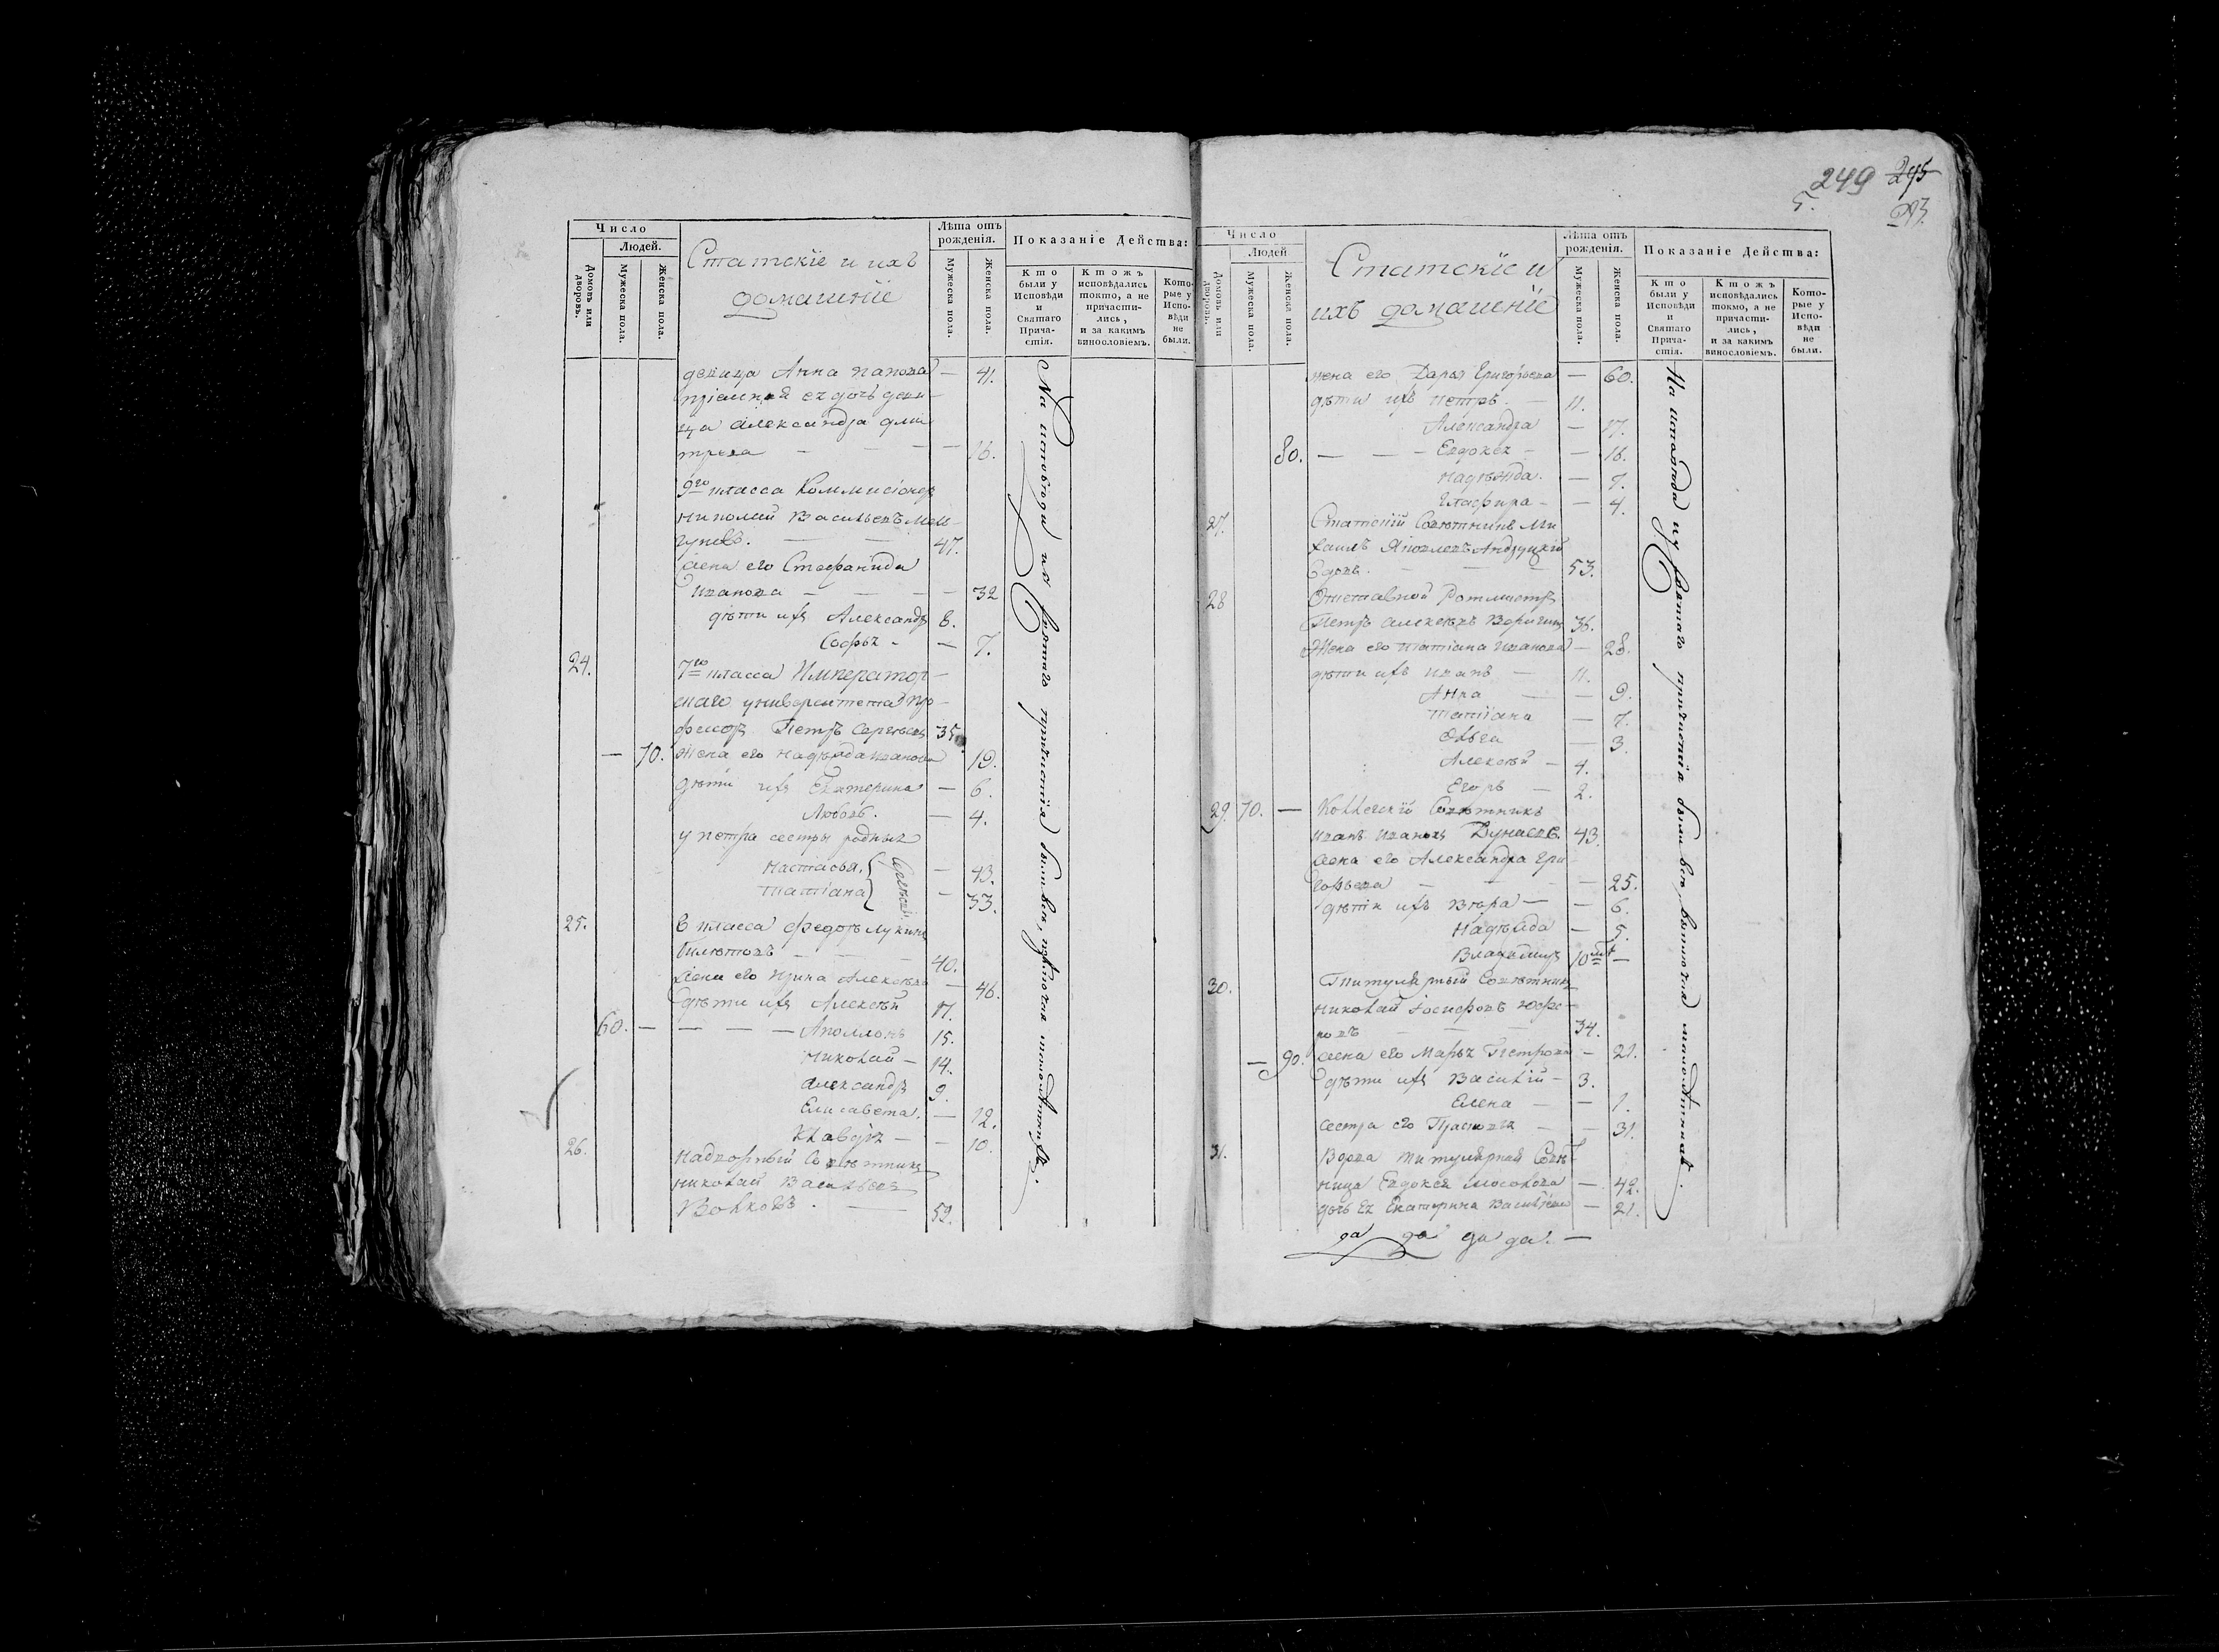 249 245
5. 293.
Число
Людей.
Домовъ или дворовъ.
Мужеска пола.
Женска пола.
Статскіе и ихъ
домашніе
Лѣта отъ рожденія.
Мужеска пола.
Женска пола.
Показаніе Действа:
Кто были у Исповѣди и Святаго Прича-стія.
Ктожъ исповѣдались токмо, а не причасти-лись, и за какимъ винословіемъ.
Кото-рые у Испо-вѣди не были.
девица Анна — 41.
пріемная ея дочь деви-
ца Александра Дми
трева — — — 16.
9го класса Коммисіонеръ
Николай Васильевъ
— — 47.
жена его Стефанида
Иванова — — — 32
дѣти ихъ Александръ 8.
Софья - — 7.
24. 7го класса Император-
скаго университета про-
фесоръ Петръ Сергѣевъ 35
— 70. Жена его Надѣжда Иванова 19.
дѣти ихъ Екатерина — 6.
Любовь. — 4.
у петра сестры родныя
Настасья. — 43.
Татіана — 33.
25. 8 класса Федоръ Лукинъ
— — — 40.
жена его Ирина Алексѣева — 46.
дѣти ихъ Алексѣй 17.
60. — — — — Аполлонъ 15.
Николай — 14.
Александръ 9.
Елисавета. — 12.
Клавдія — — 10.
26. Надворный Совѣтникъ
Николай Васильевъ
Волковъ . — 52.
На исповѣди и у святаго причастія были все, включая малолѣтнихъ.
Число
Людей
Домовъ или дворовъ.
Мужеска пола.
Женска пола.
Статскіе и
ихъ домашніе
Лѣта отъ рожденія.
Мужеска пола.
Женска пола.
Показаніе Действа:
Кто были у Исповѣди и Святаго Прича-стія.
Ктожъ исповѣдались токмо, а не причасти-лись, и за какимъ винословіемъ.
Кото-рые у Испо-вѣди не были.
жена его Дарья Григорьева — 60.
дѣти ихъ Петръ. — 11.
Александра — 17.
80. — — - Евдокея - — 16.
Надѣжда. — 7.
Глафира - — 4.
27. Статскій Совѣтникъ Ми
хаилъ Яковлевъ
вдовъ. — — 53.
28 Отставной Ротмистръ
Петръ Алексѣевъ 36.
Жена его Татіана Иванова — 28.
дѣти ихъ Иванъ — 11.
Анна — — 9.
Татіана — 7.
Ольга — 3.
Алексѣй — 4.
Егоръ — 2.
29. 70. — Коллегскій Совѣтникъ
Иванъ Ивановъ Дунаевъ. 43.
жена его Александра Гри
горьева — — — 25.
дѣти ихъ Вѣра — — 6.
Надѣжда — 5.
Владимиръ 10 мѣ —
30. Титулярный Совѣтникъ
Николай Іосифовъ
— — 34.
— 90. жена его Марья Петрова — 21.
дѣти ихъ Василій — 3.
Елена — — 1.
сестра его Прасковья — — 31.
31. Вдова титулярная Совѣт
ница Евдокея — 42.
дочь ея Екатерина Васильева — 21.
На исповѣди и у святаго причастія были все, включая малолѣтнихъ.
да да да да. —